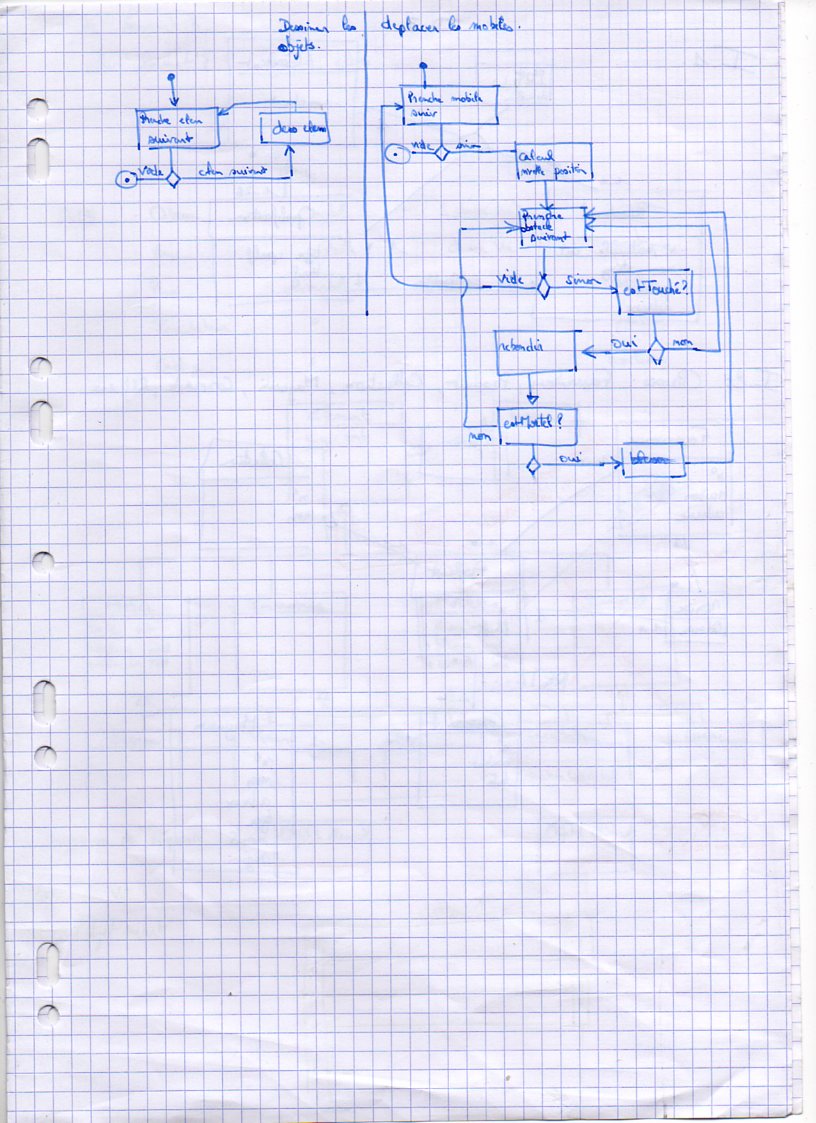 Dessiner les
objets.
Prendre elem
suivant
dess elem
vide
elem suivant
deplacer les mobiles.
Prendre mobile
suiv
vide
sinon
Calcul
nvelle position
Prendre
obstacle
suivant
vide
sinon
estTouché?
oui
non
rebondir
estMortel?
non
oui